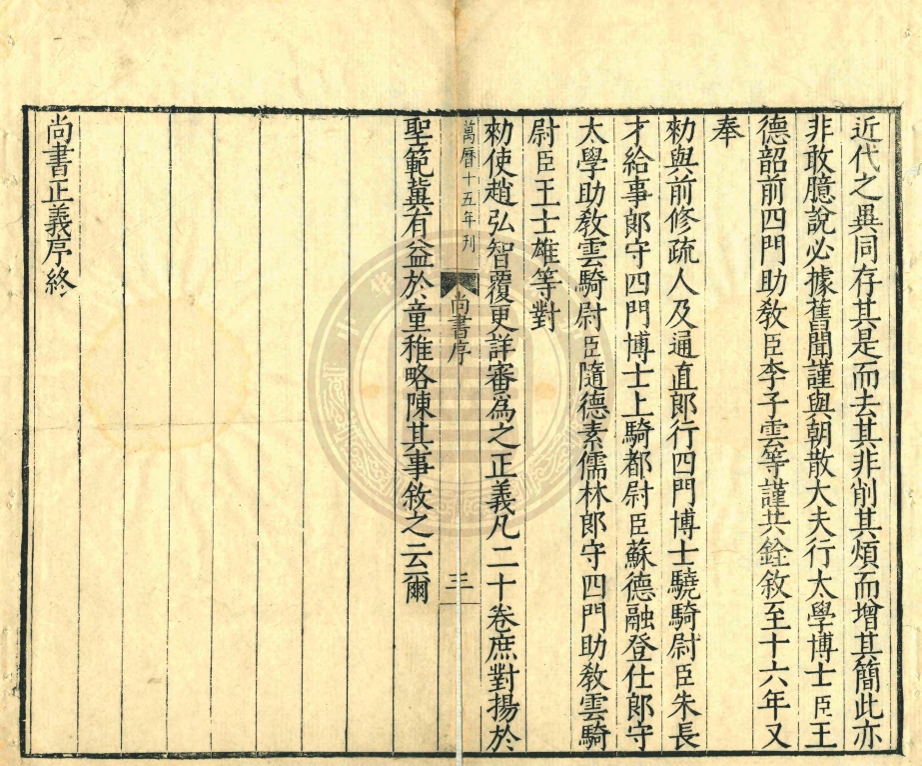 近代之異同存其是而去其非削其煩而增其簡此亦
非敢臆說必據舊聞謹與朝散大夫行太學博士臣王
德韶前四門助敎臣李子雲等謹共銓敘至十六年又
奉
勑與前修疏人及通直郎行四門博士驍騎尉臣朱長
才給事郎守四門博士上騎都尉臣蘇德融登仕郎守
太學助敎雲騎尉臣隨德素儒林郎守四門助敎雲騎
尉臣王士雄等對
勑使趙弘智覆更詳審爲之正義凡二十卷庶對揚於
萬曆十五年刋
尚書序
三
聖範冀有益於童稚略陳其事敘之云爾
尚書正義序終